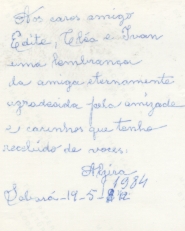 Aos caros amigo
Edite, Cléa e Ivan
uma lembrança
da amiga eternamente
agradecida pela amizade
e carinhos que tenho
recebido de voces.
Alzira
1984
Sabará-19-5-